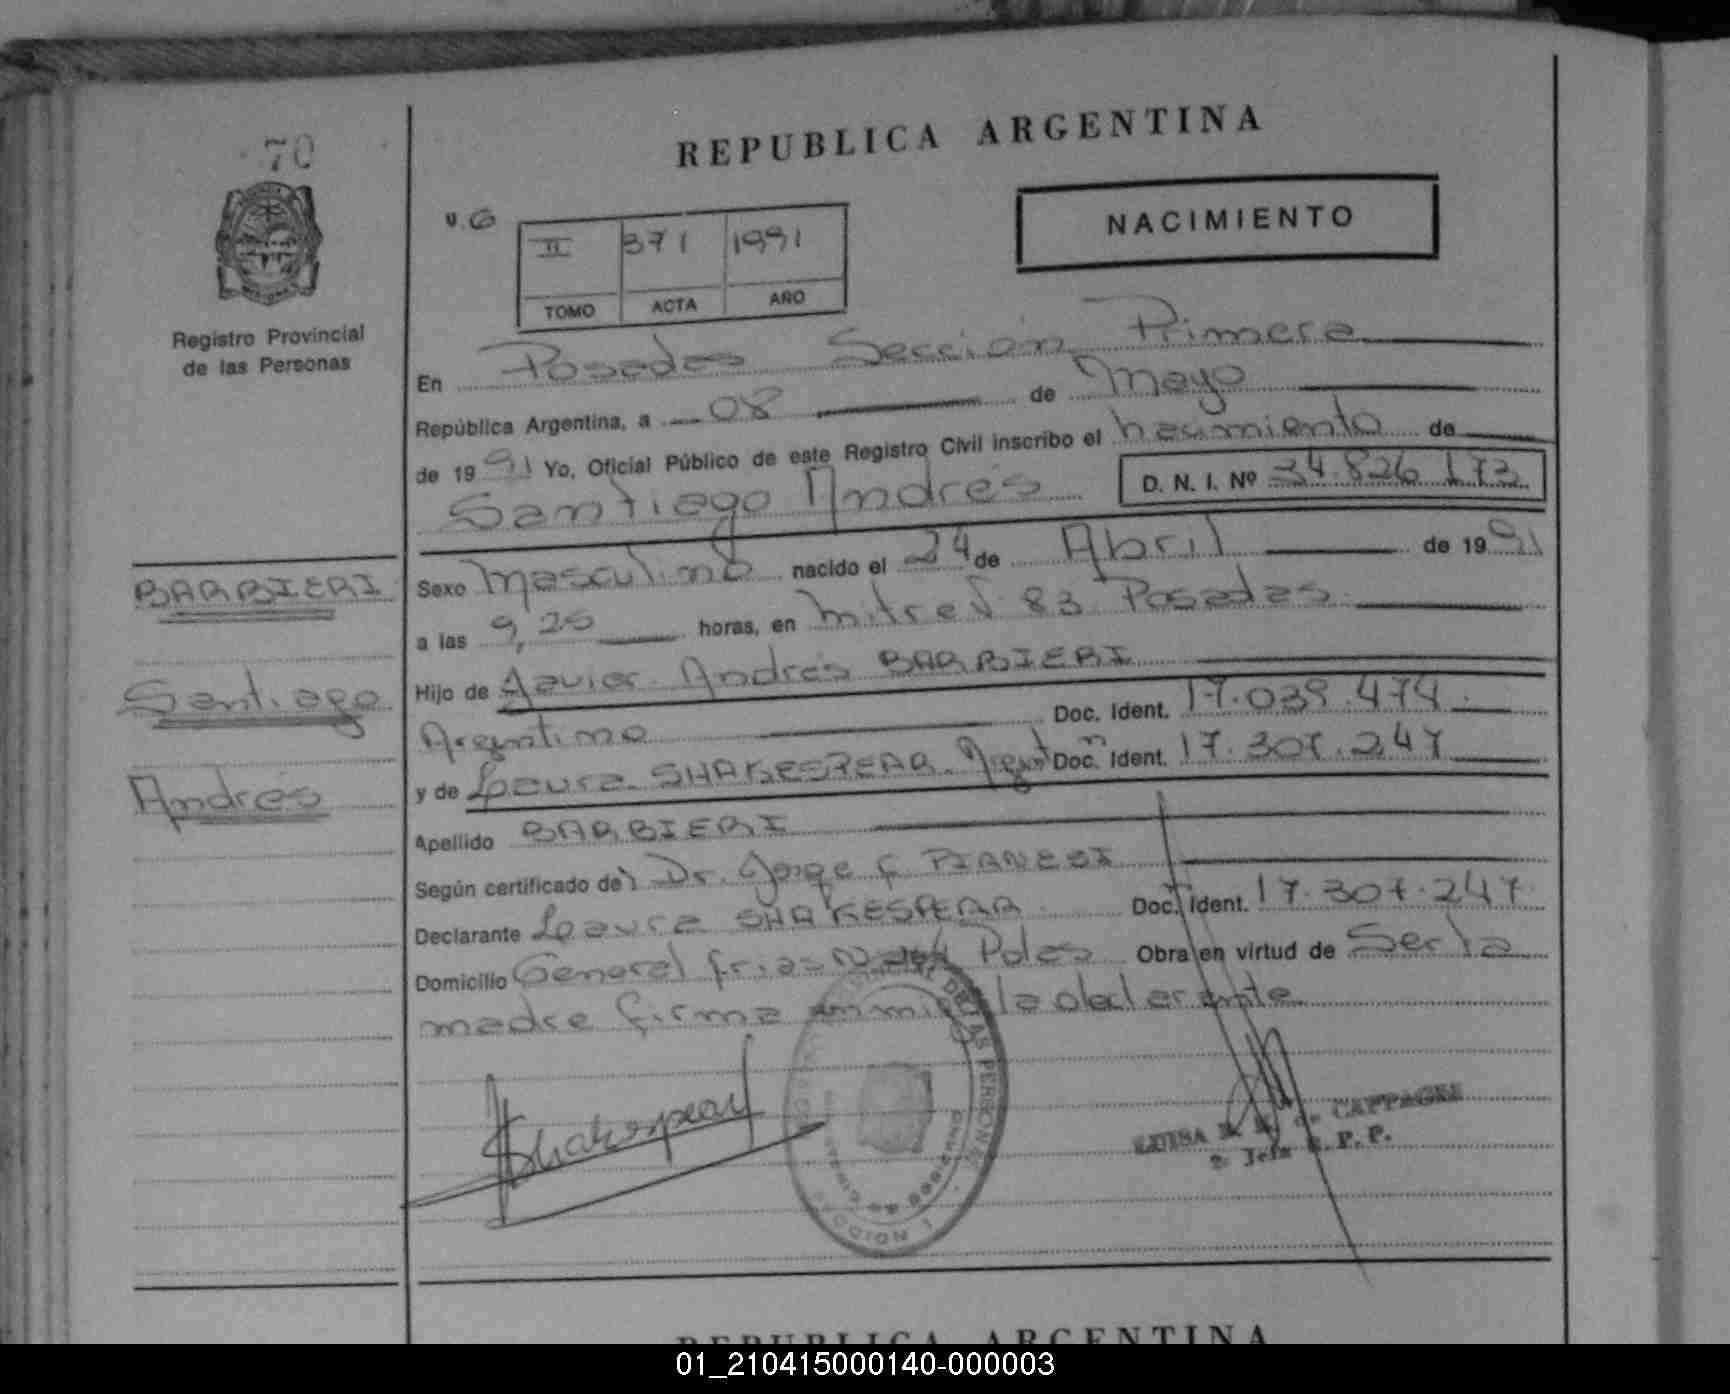 70
REPUBLICA ARGENTINA
NACIMIENTO
V. G
II 371 1991
TOMO ACTA AÑO
Registro Provincial
de las Personas
En Posadas Sección Primera
República Argentina, a 08 de Mayo
de 1991 Yo, Oficial Público de este Registro Civil inscribo el nacimiento de
Santiago Andrés D. N. I. Nº 34.826.173
Sexo Masculino nacido el 24 de Abril de 1991
a las 9,25 horas, en Mitre Nº 83 Posadas
Hijo de Javier Andrés BARBIERI
Argentino Doc. Ident. 17.039.474
y de Laura SHAKESPEAR Argentⁿ Doc. Ident. 17.307.247
Apellido BARBIERI
Según certificado del Dr. Jorge F. PIANESI
Declarante Laura SHAKESPEAR Doc. Ident. 17.307.247
Domicilio General frias Pdas Obra en virtud de Ser la
madre firma conmigo la declarante
BARBIERI
Santiago
Andrés
Shakespear
DE LAS PERSONAS
LUISA CAPPAGLI
Jefe R. P. P.
REPUBLICA ARGENTINA
01_210415000140-000003